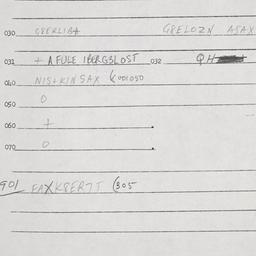 030 G8ERLIB+ G8ELOZN ASAX
031 + A FULE IBERG3LOST 032 QH
040 NIS+KIN SAX
050 0
060 +
070 0
901 FAXK8ERTT (305